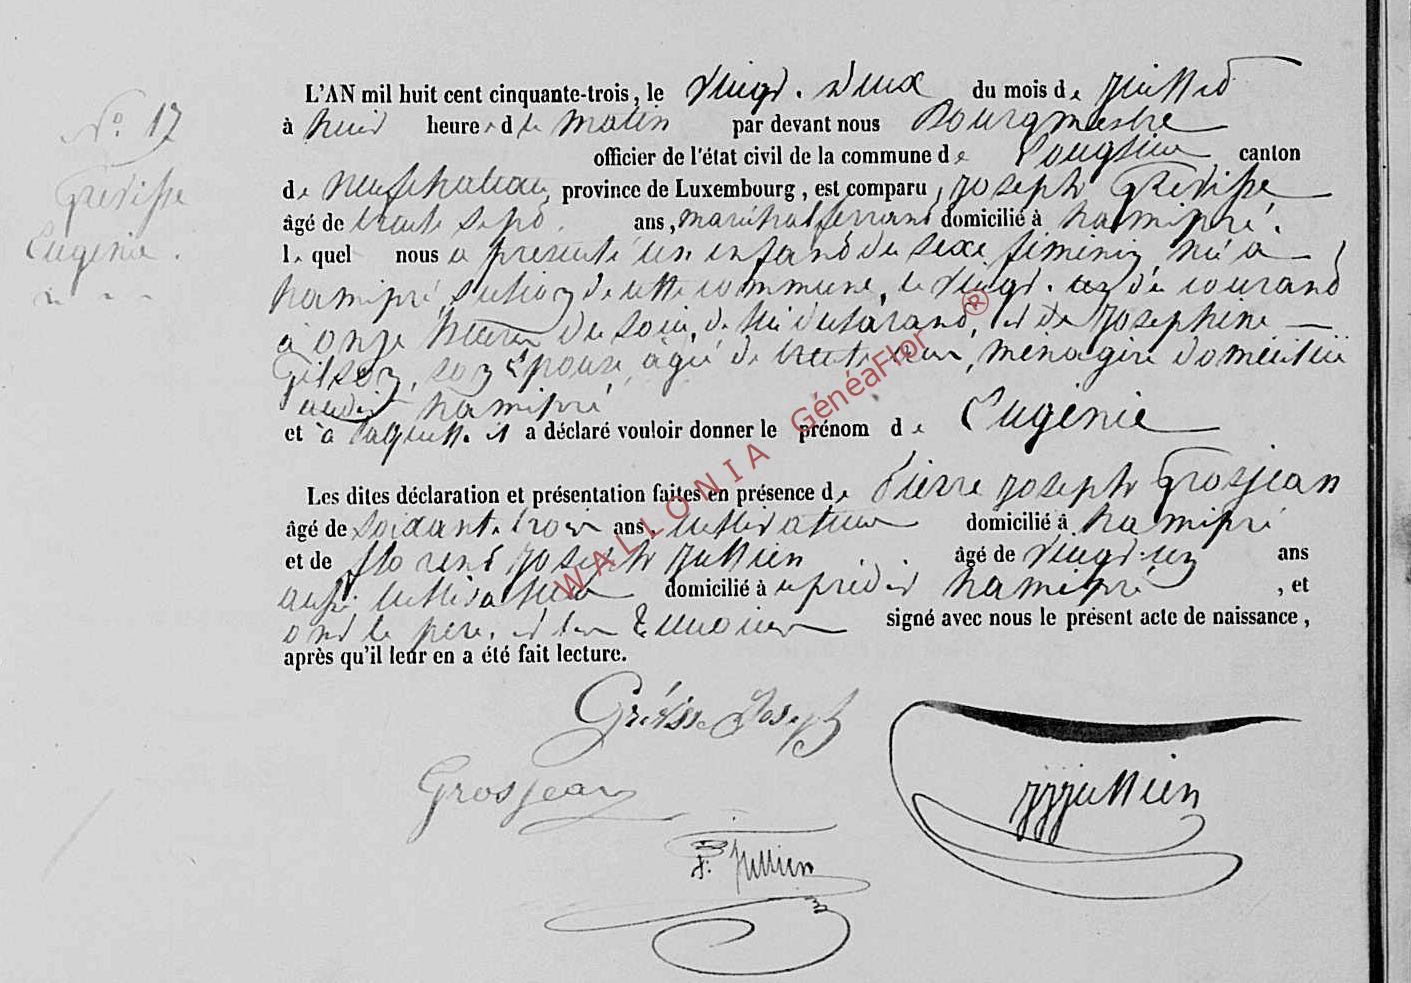 N° 17
Grévisse
Eugénie.
L'AN mil huit cent cinquante-trois, le vingt-deux du mois de juillet
à huit heures du matin par devant nous Bourgmestre
officier de l'état civil de la commune de Longlier canton
de Neufchateau, province de Luxembourg, est comparu, Joseph Grévisse
âgé de trente sept ans, maréchal ferrant domicilié à hamipré.
lequel nous a présenté un enfant du sexe féminin né à
hamipré, section de cette commune, le vingt-un du courant
à onze heures du soir, de lui déclarant, et de Josephine
Gilson, son épouse, âgée de trente ménagère domiciliée
audit hamipré
et à laquelle il a déclaré vouloir donner le prénom de Eugénie
Les dites déclaration et présentation faites en présence de Pierre Joseph Grosjean
âgé de soixante trois ans, cultivateur domicilié à hamipré
et de florent Joseph Jullien âgé de vingt-un ans
aussi cultivateur domicilié à uprédit hamipré, et
ont le père et les témoins signé avec nous le présent acte de naissance,
après qu'il leur en a été fait lecture.
Grévisse Joseph
Grosjean
JJJullien
f. Jullien
WALLONIA GénéaFlor ®